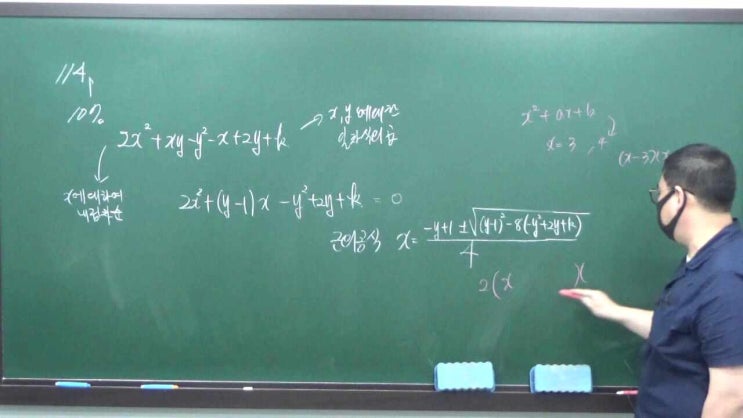 114.
10%
2x²+xy-y²-x+2y+k → x,y에 대한
일차식의 곱
x에 대하여
내림차순
2x²+(y-1)x-y²+2y+k=0
근의공식 x=\frac{-y+1±\sqrt{(y-1)²-8(-y²+2y+k)}}{4}
2(x )(
x²+ax+b
x=3, 4
(x-3)(x